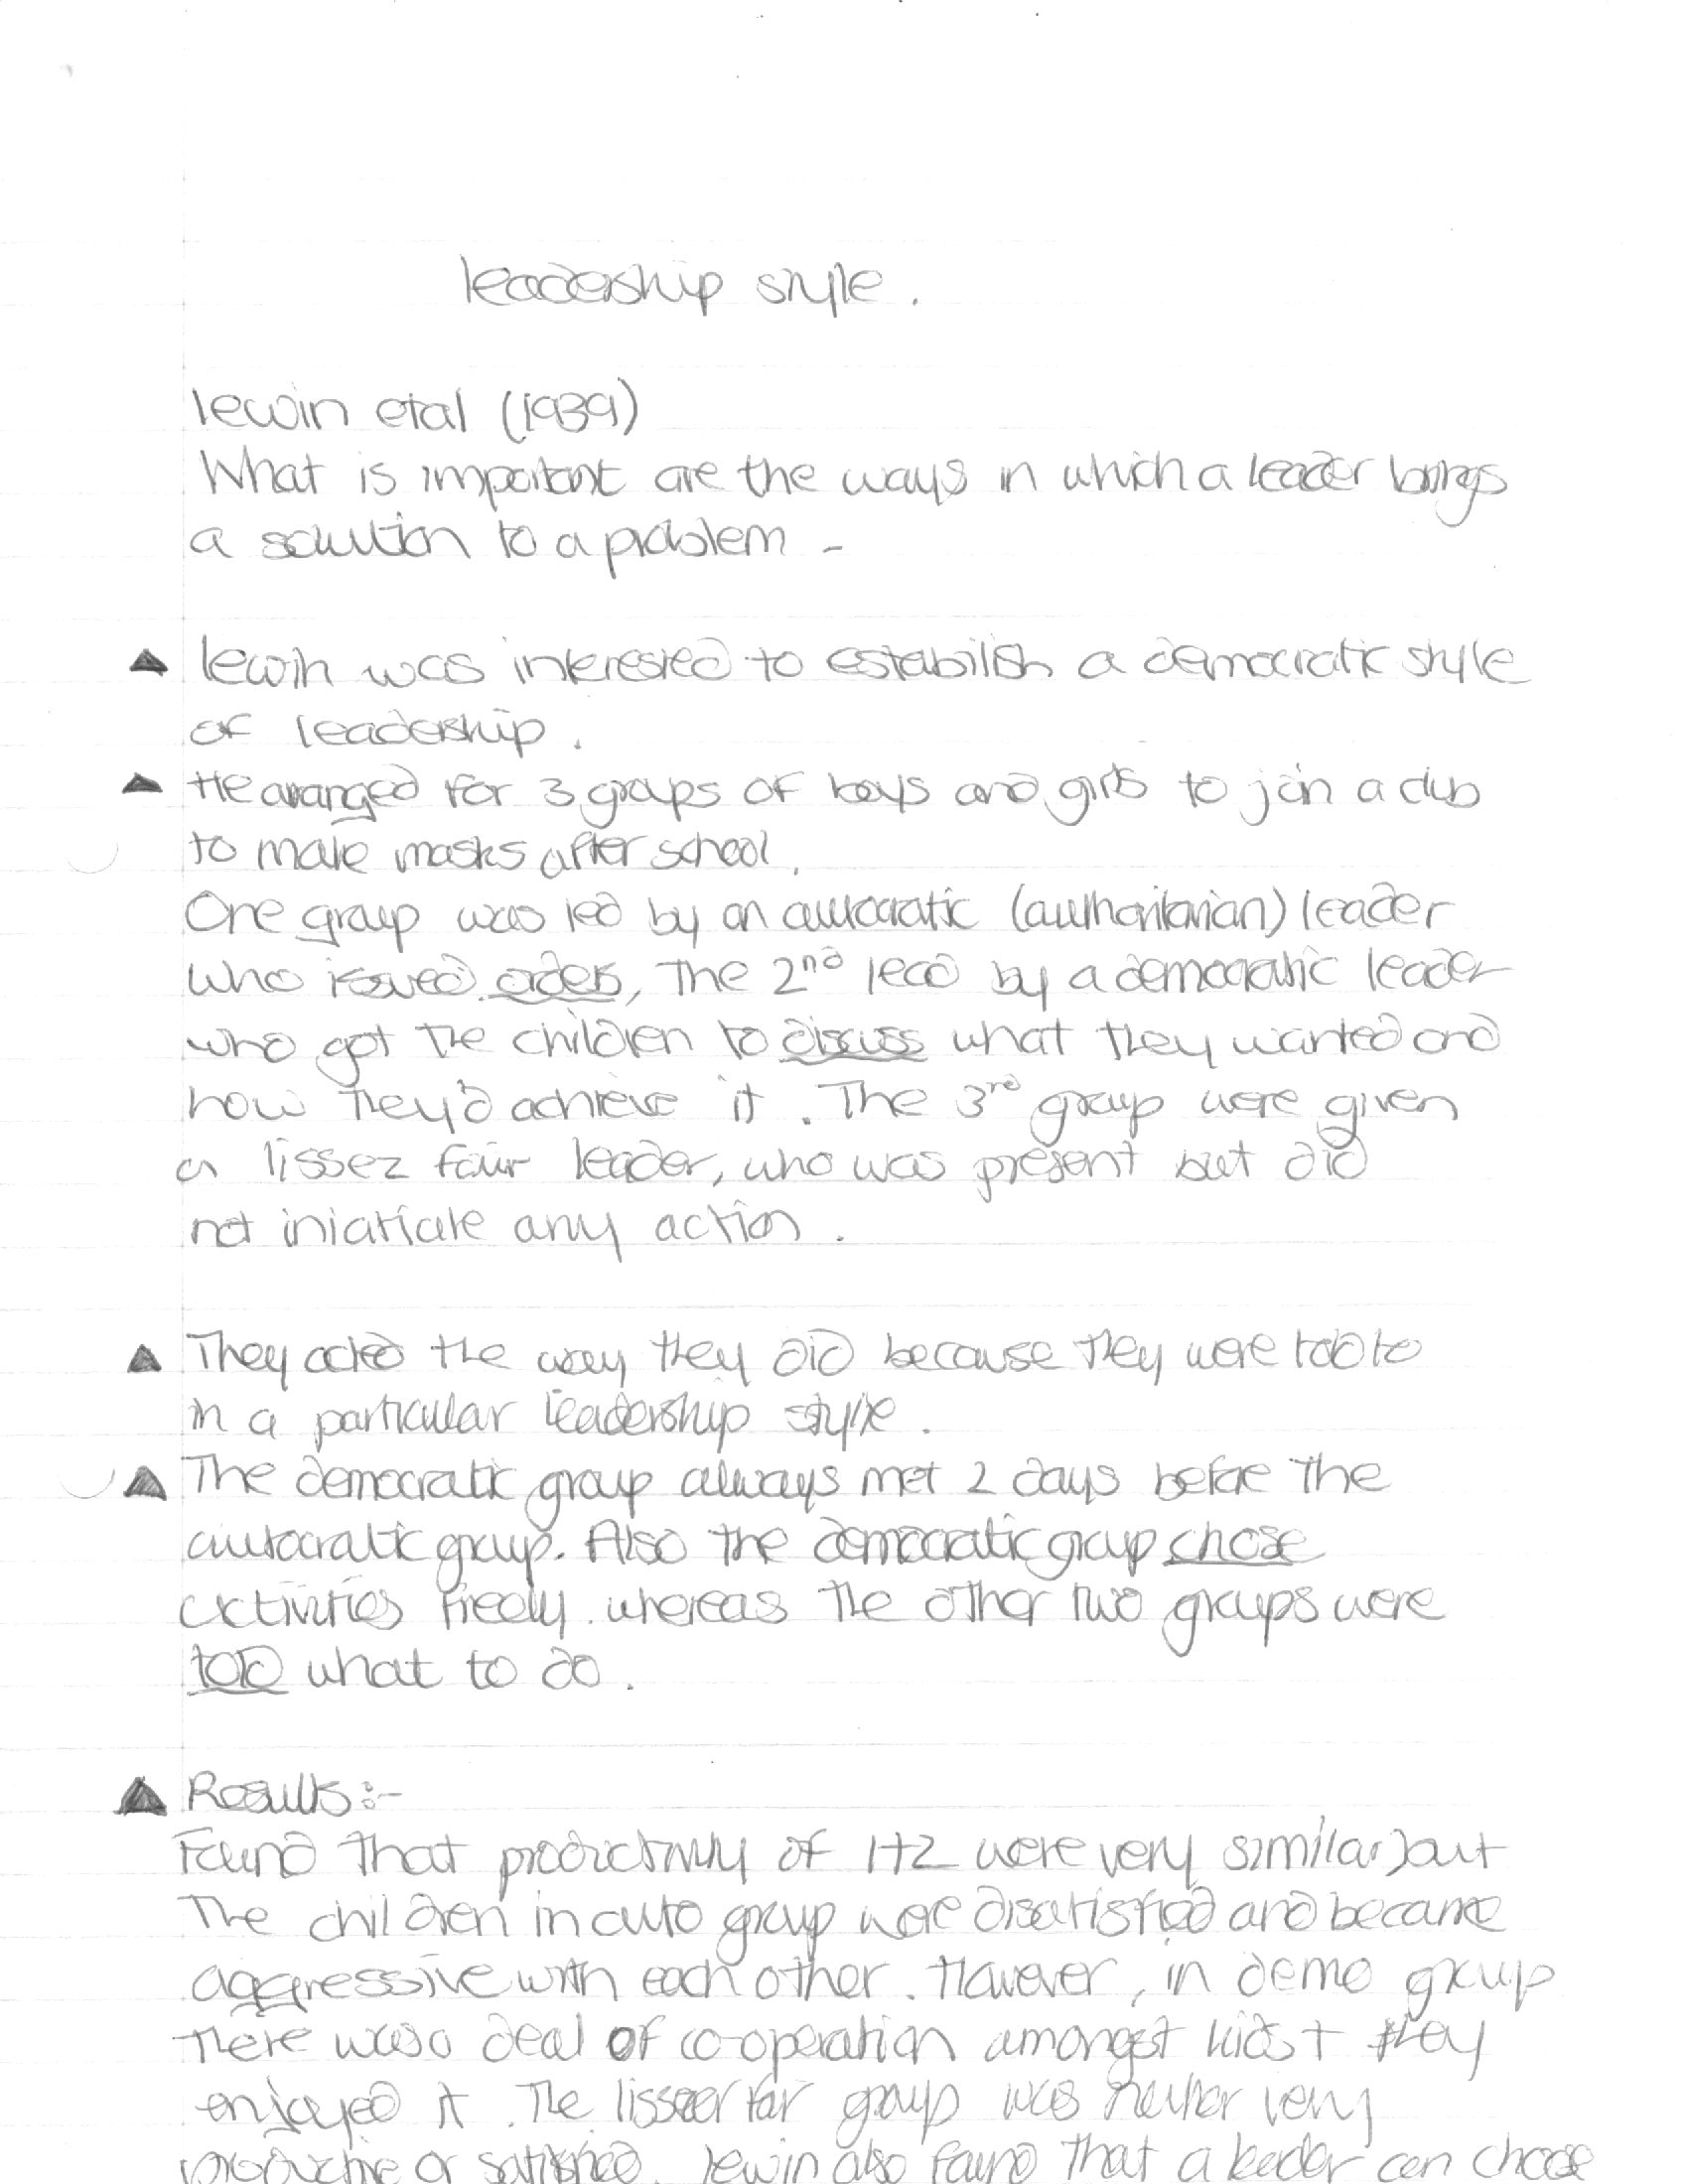 leadership style.
lewin etal (1939)
What is important are the ways in which a leader brings
a solution to a problem -
▲ lewin was interested to estabilish a democratic style
of leadership.
▲ He arranged for 3 groups of boys and girls to join a club
to make masks after school.
One group was led by an autocratic (authoritarian) leader
who issued orders, The 2nd lead by a democratic leader
who got the children to discuss what they wanted and
how they'd achieve it. The 3rd group were given
a lissez fair leader, who was present but did
not iniatiate any action.
▲ They acted the way they did because they were told to
in a particular leadership style.
▲ The democratic group always met 2 days before the
autocratic group. Also the democratic group chose
activities freely whereas the other two groups were
told what to do.
▲ Results:-
Found that productivity of 1+2 were very similar but
The children in auto group were disatisfied and became
aggressive with each other. However, in demo group
There was a deal of co-operation amongst kids + they
enjoyed it. The lissez fair group was neither very
productive or satisfied. lewin also found that a leader can choose